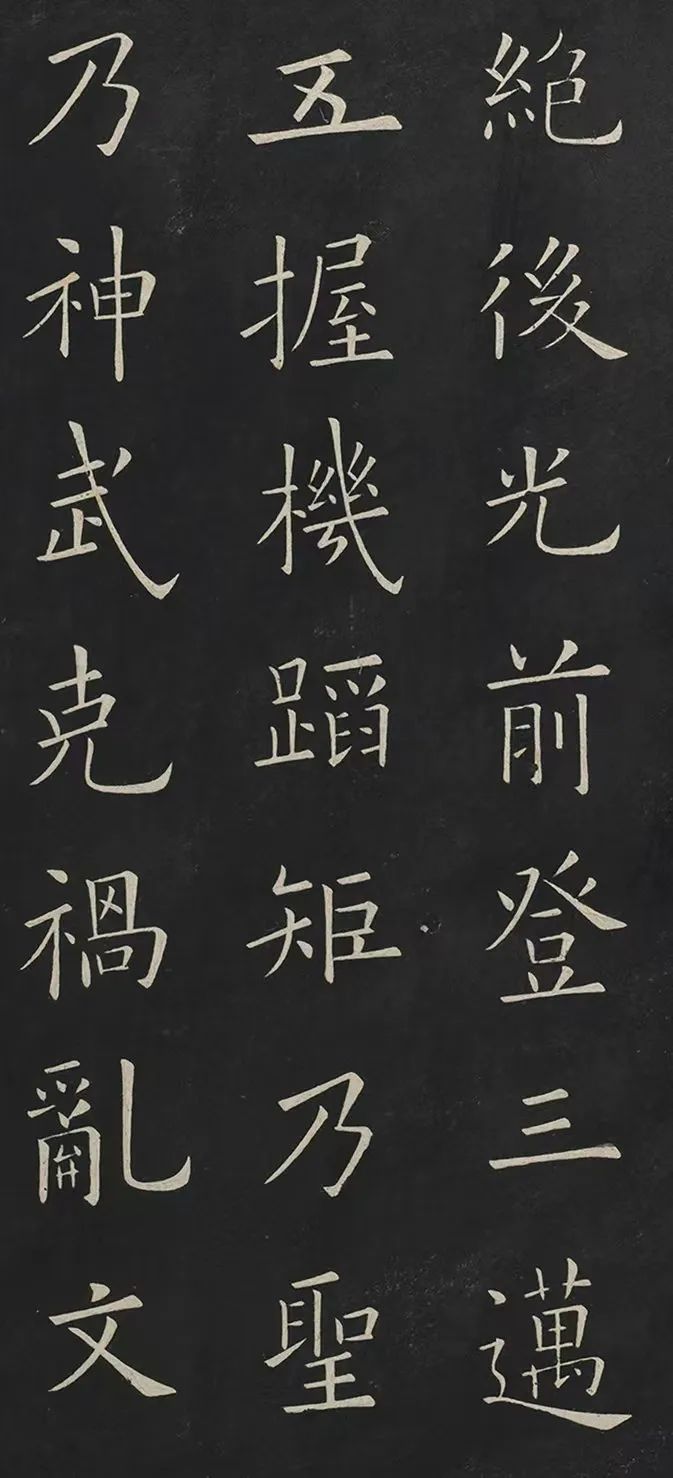 絶後光前登三邁
五握機蹈矩乃聖
乃神武克禍亂文